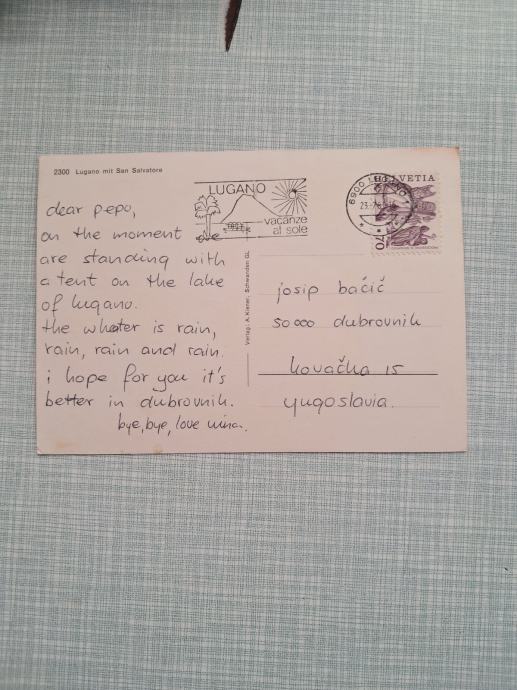 2300 Lugano mit San Salvatore
LUGANO
vacanze
al sole
6900 LUGANO
HELVETIA
70
dear pepo,
on the moment we
are standing with
a tent on the lake
of lugano.
the wheter is rain,
rain, rain and rain.
i hope for you it's
better in dubrovnik.
bye, bye, love nina.
Verlag: A. Kiener, Schwanden GL
josip bačić
50000 dubrovnik
kovačka 15
yugoslavia.